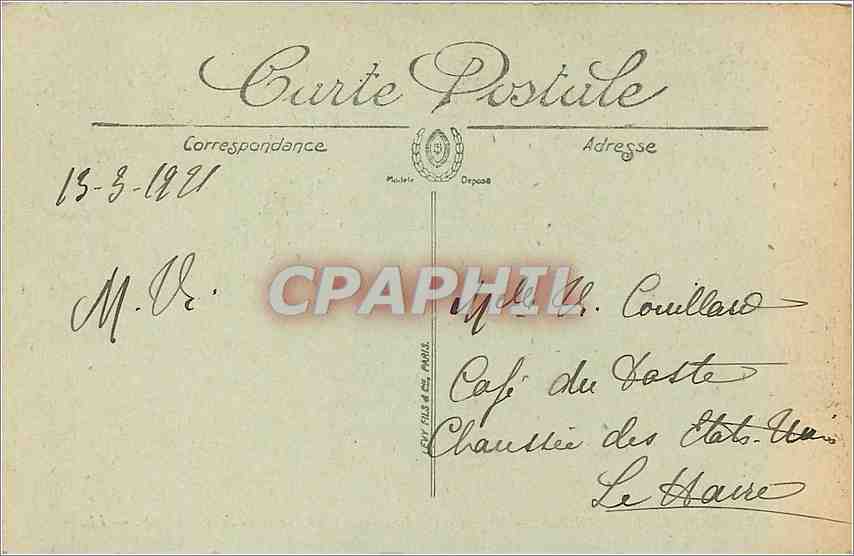 Carte Postale
Correspondance
Adresse
Modèle Déposé
13-3-1921
M. Vr.
CPAPHIL
Mlle V. Couillard
Café du Poste
Chaussée des Etats-Unis
Le Havre
LEVY FILS & Cie, PARIS.